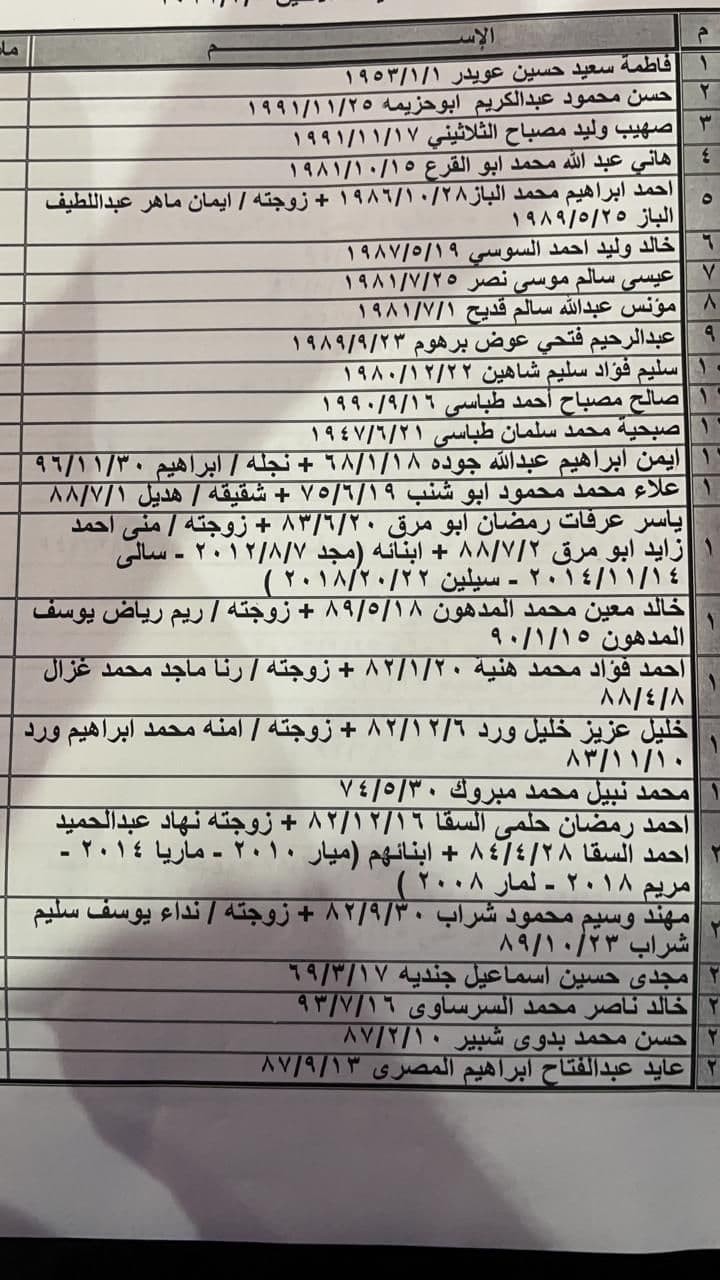 م الإســـــــــــم
١ فاطمة سعيد حسين عويدر ١٩٥٣/١/١
٢ حسن محمود عبدالكريم ابوحزيمه ١٩٩١/١١/٢٥
٣ صهيب وليد مصباح الثلاثيني ١٩٩١/١١/١٧
٤ هاني عبد الله محمد ابو القرع ١٩٨١/١٠/١٥
٥ احمد ابراهيم محمد الباز١٩٨٦/١٠/٢٨ + زوجته / ايمان ماهر عبداللطيف
الباز ١٩٨٩/٥/٢٥
٦ خالد وليد احمد السوسي ١٩٨٧/٥/١٩
٧ عيسى سالم موسي نصر ١٩٨١/٧/٢٥
٨ مؤنس عبدالله سالم قديح ١٩٨١/٧/١
٩ عبدالرحيم فتحي عوض برهوم ١٩٨٩/٩/٢٣
سليم فؤاد سليم شاهين ١٩٨٠/١٢/٢٢
صالح مصباح أحمد طباسى ١٩٩٠/٩/١٦
صبحية محمد سلمان طباسى ١٩٤٧/٦/٢١
ايمن ابراهيم عبدالله جوده ٦٨/١/١٨ + نجله / ابراهيم ٩٦/١١/٣٠
علاء محمد محمود ابو شنب ٧٥/٦/١٩ + شقيقه / هديل ٨٨/٧/١
ياسر عرفات رمضان ابو مرق ٨٣/٦/٢٠ + زوجته / منى احمد
زايد ابو مرق ٨٨/٧/٢ + ابنائه (مجد ٢٠١٢/٨/٧ - سالى
٢٠١٤/١١/١٤ - سيلين ٢٠١٨/٢٠/٢٢ )
خالد معين محمد المدهون ٨٩/٥/١٨ + زوجته / ريم رياض يوسف
المدهون ٩٠/١/١٥
احمد فؤاد محمد هنية ٨٢/١/٢٠ + زوجته / رنا ماجد محمد غزال
٨٨/٤/٨
خليل عزيز خليل ورد ٨٢/١٢/٦ + زوجته / امنه محمد ابراهيم ورد
٨٣/١١/١٠
محمد نبيل محمد مبروك ٧٤/٥/٣٠
احمد رمضان حلمى السقا ٨٢/١٢/١٦ + زوجته نهاد عبدالحميد
احمد السقا ٨٤/٤/٢٨ + ابنائهم (ميار ٢٠١٠ - ماريا ٢٠١٤ -
مريم ٢٠١٨ - لمار ٢٠٠٨ )
مهند وسيم محمود شراب ٨٢/٩/٣٠ + زوجته / نداء يوسف سليم
شراب ٨٩/١٠/٢٣
مجدى حسين اسماعيل جنديه ٦٩/٣/١٧
خالد ناصر محمد السرساوى ٩٣/٧/١٦
حسن محمد بدوى شبير ٨٧/٢/١٠
عايد عبدالفتاح ابراهيم المصرى ٨٧/٩/١٣